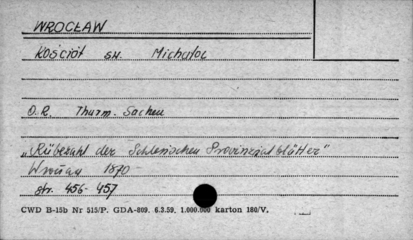 WROCŁAW
Kościół św. Michała
O.R. Thurm. Sachen
"Rübezahl der Schlesischen Provinzialblätter"
Wrocław 1870
str. 456-457
CWD B-15b Nr 515/P. GDA-809. 6.3.59. 1.000.000 karton 180/V.